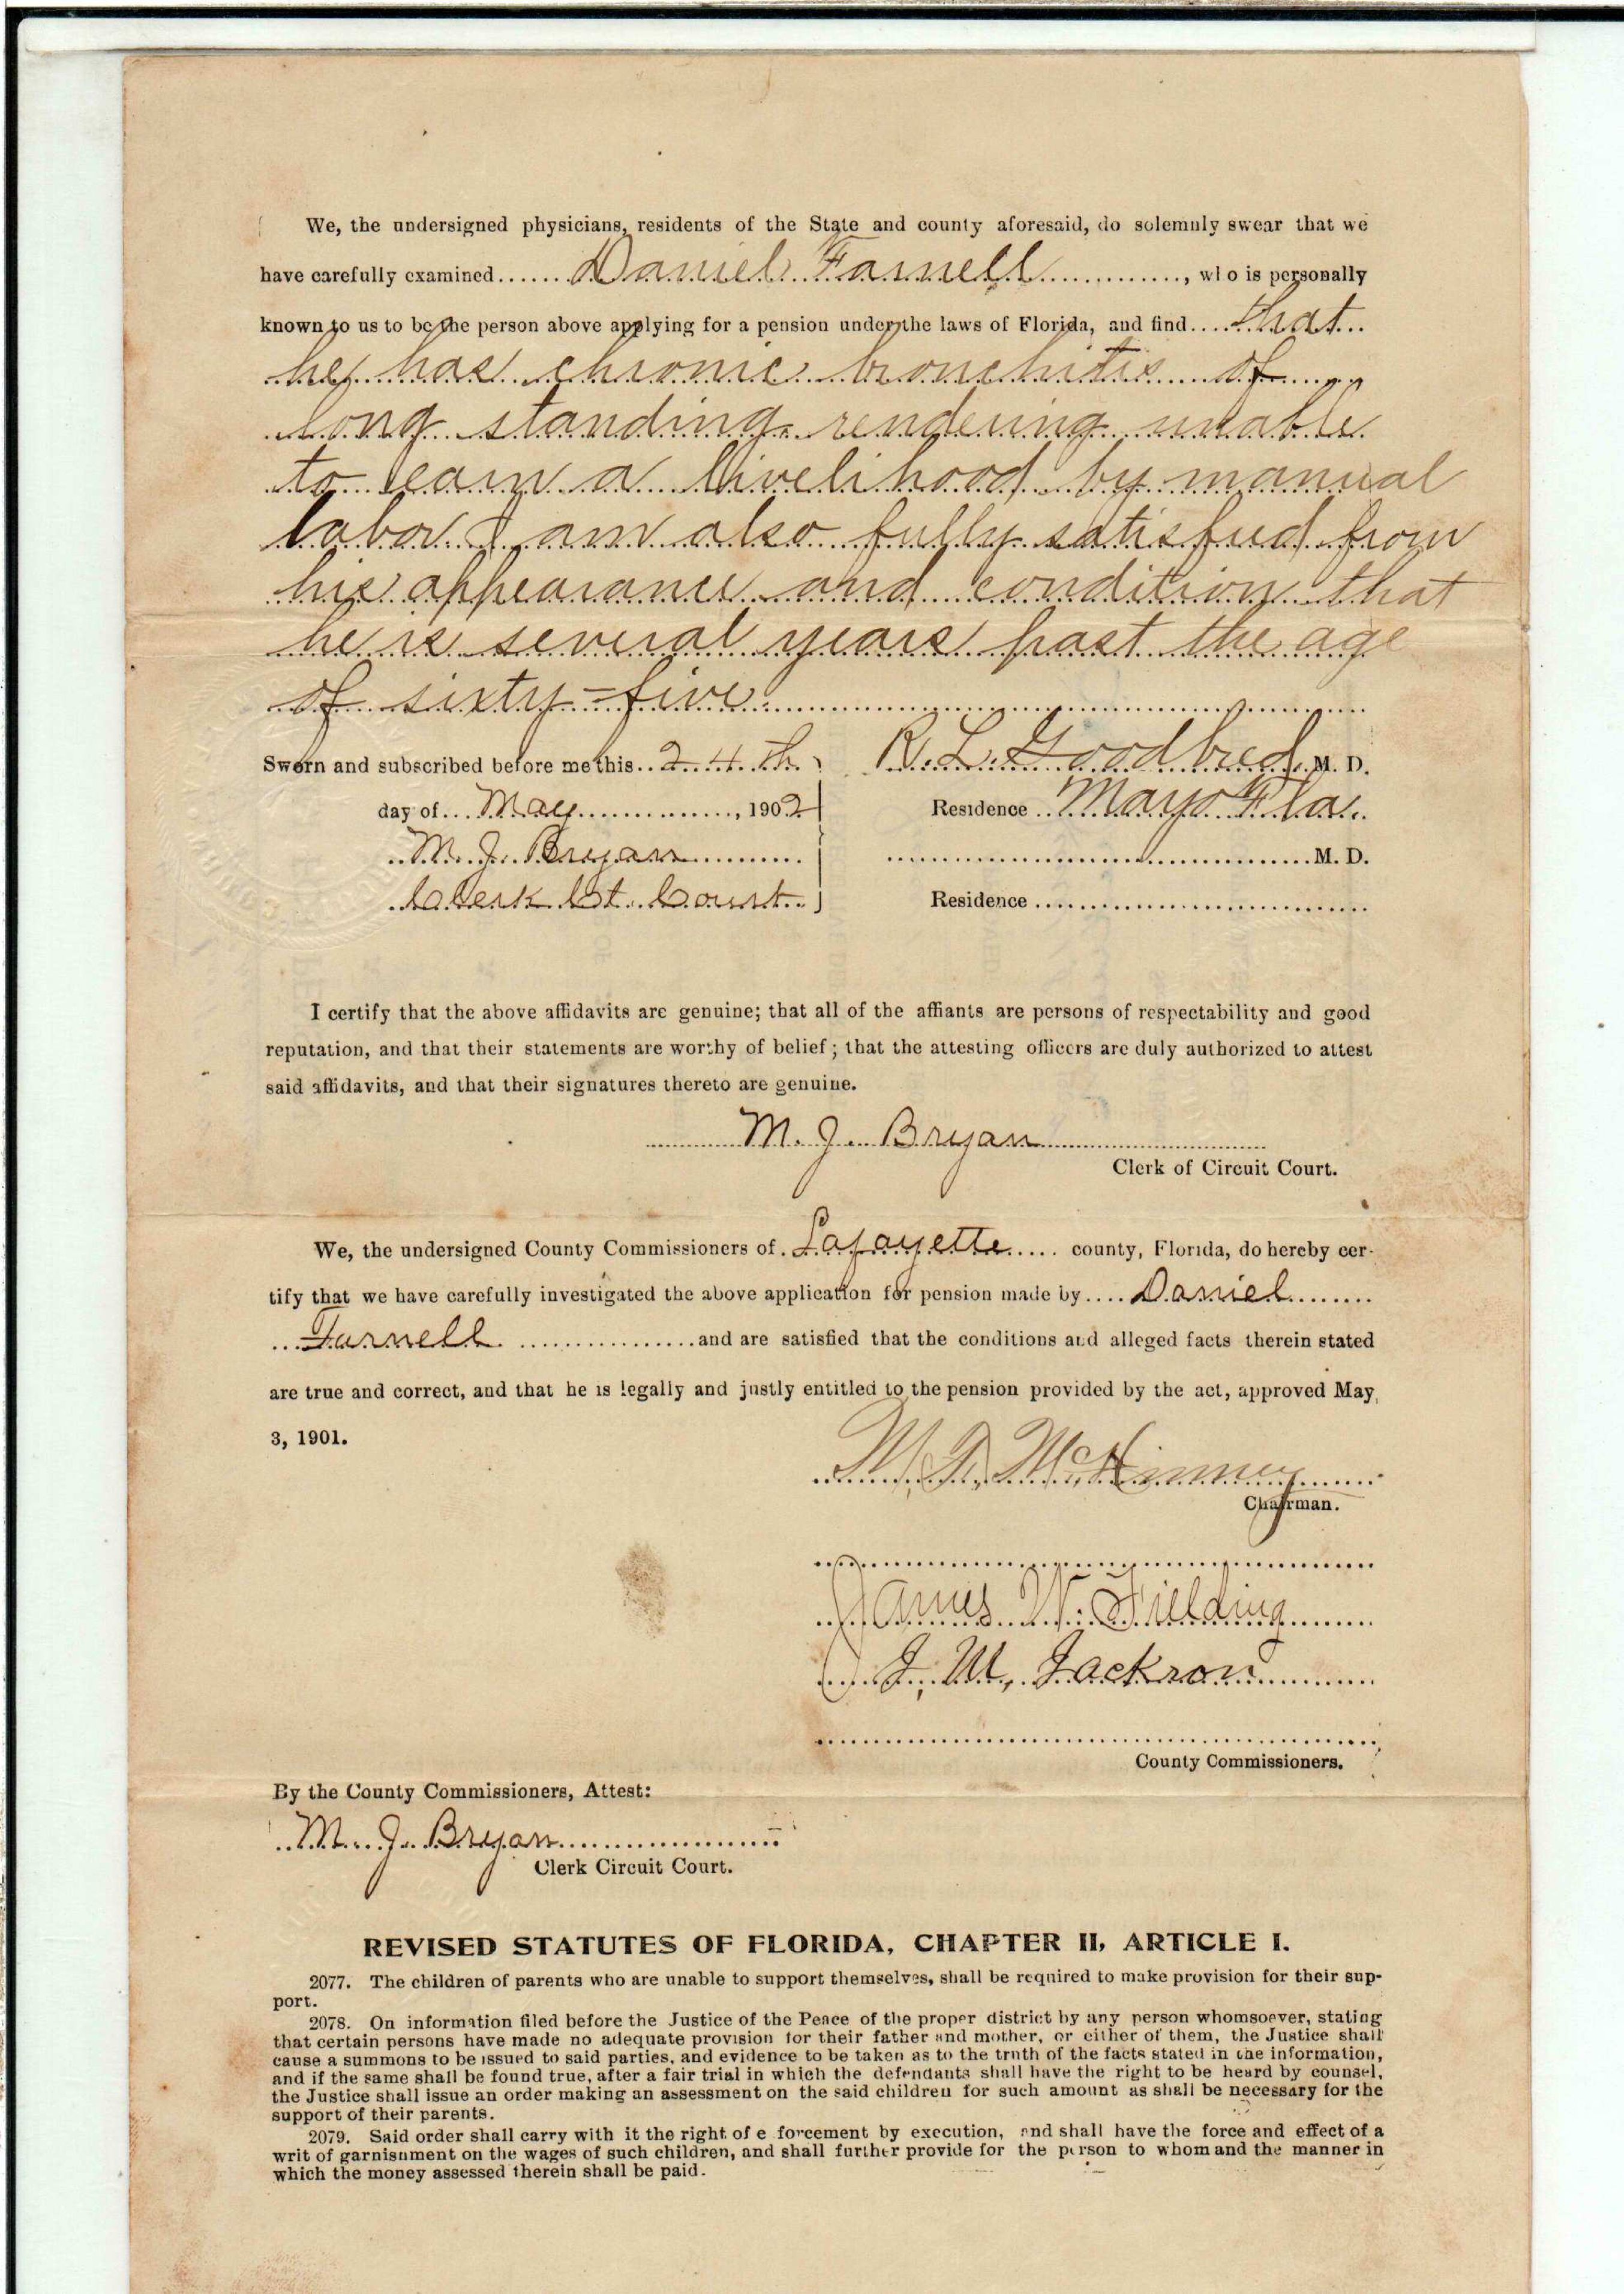 We, the undersigned physicians, residents of the State and county aforesaid, do solemnly swear that we
have carefully examined Daniel Farnell, who is personally
known to us to be the person above applying for a pension under the laws of Florida, and find that
he has chronic bronchitis of
long standing rendering unable
to earn a livelihood by manual
labor. I am also fully satisfied from
his appearance and condition that
he is several years past the age
of sixty-five.
Sworn and subscribed before me this 24th
day of May, 1902
M. J. Bryan
Clerk Ct. Court
R. L. Goodbred M. D.
Residence Mayo Fla.
M. D.
Residence
I certify that the above affidavits are genuine; that all of the affiants are persons of respectability and good
reputation, and that their statements are worthy of belief; that the attesting officers are duly authorized to attest
said affidavits, and that their signatures thereto are genuine.
M. J. Bryan
Clerk of Circuit Court.
We, the undersigned County Commissioners of Lafayette county, Florida, do hereby cer-
tify that we have carefully investigated the above application for pension made by Daniel
Farnell and are satisfied that the conditions and alleged facts therein stated
are true and correct, and that he is legally and justly entitled to the pension provided by the act, approved May
3, 1901.
McKinney
Chairman.
James W. Fielding
J. M. Jackson
County Commissioners.
By the County Commissioners, Attest:
M. J. Bryan
Clerk Circuit Court.
REVISED STATUTES OF FLORIDA, CHAPTER II, ARTICLE I.
2077. The children of parents who are unable to support themselves, shall be required to make provision for their sup-
port.
2078. On information filed before the Justice of the Peace of the proper district by any person whomsoever, stating
that certain persons have made no adequate provision for their father and mother, or either of them, the Justice shall
cause a summons to be issued to said parties, and evidence to be taken as to the truth of the facts stated in the information,
and if the same shall be found true, after a fair trial in which the defendants shall have the right to be heard by counsel,
the Justice shall issue an order making an assessment on the said children for such amount as shall be necessary for the
support of their parents.
2079. Said order shall carry with it the right of e forcement by execution, and shall have the force and effect of a
writ of garnishment on the wages of such children, and shall further provide for the person to whom and the manner in
which the money assessed therein shall be paid.